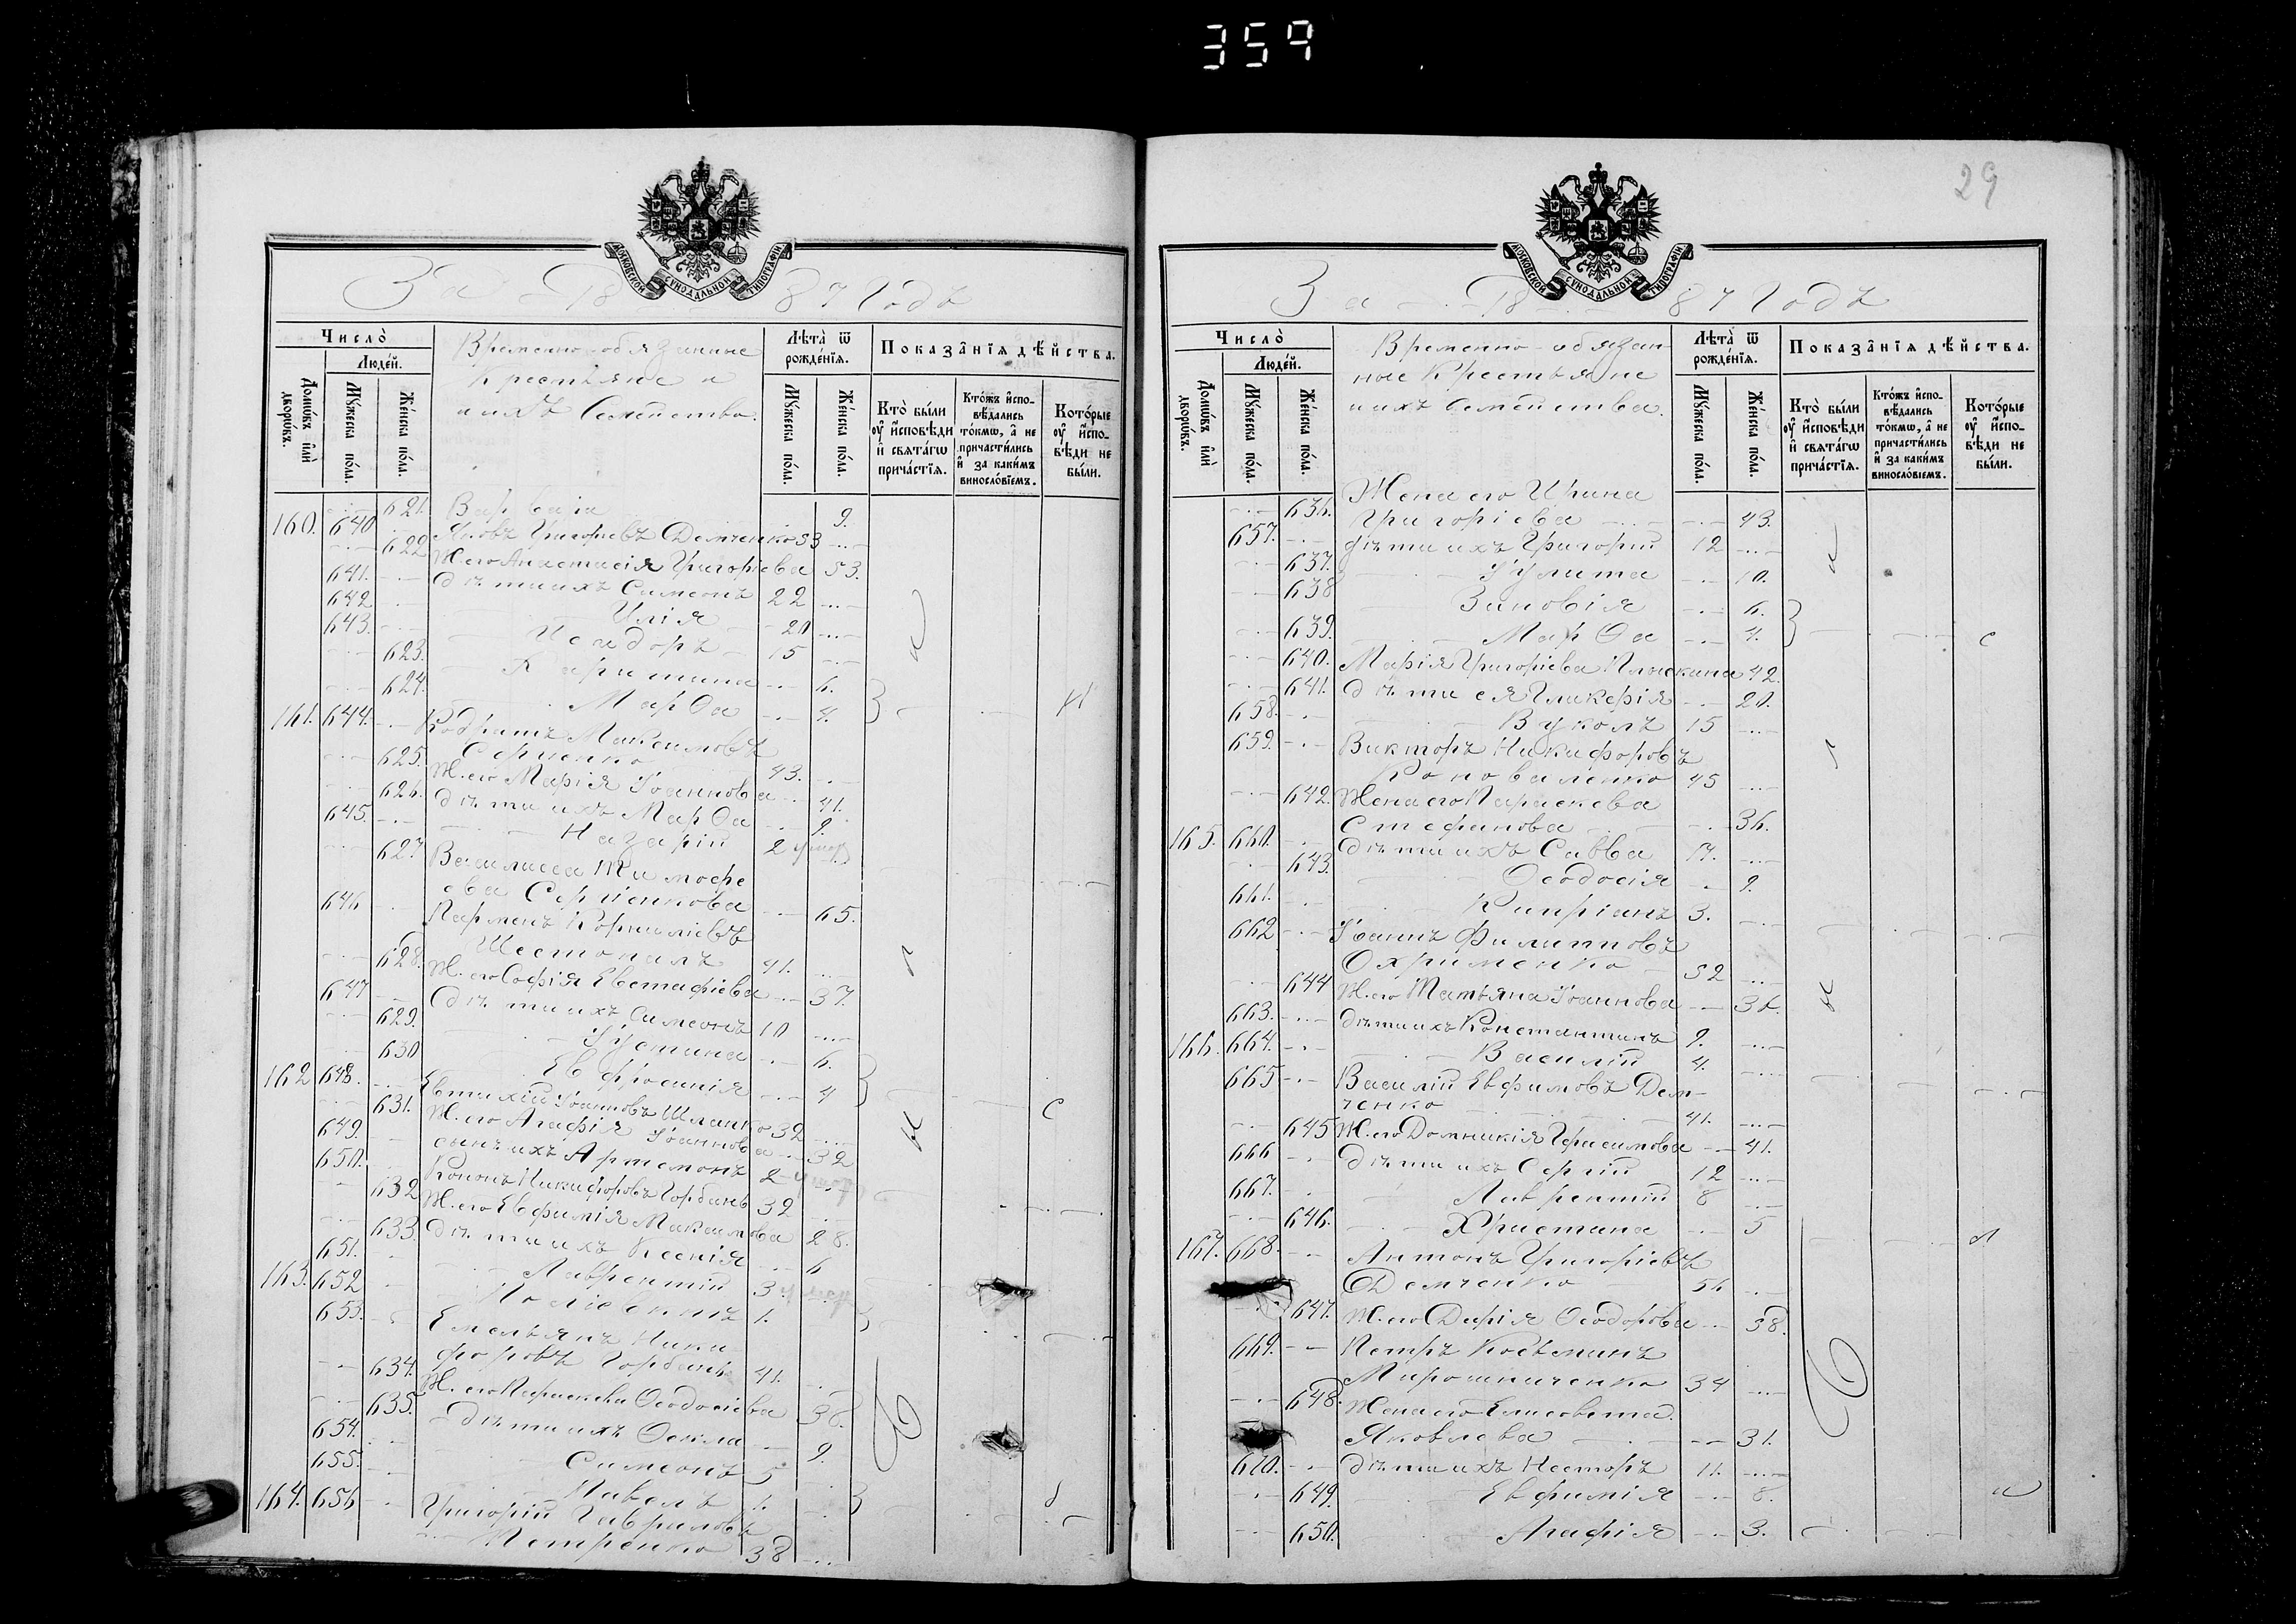 359
МОСКОВСКОЙ СѴНОДАЛЬНОЙ ТИПОГРАФІИ
За 1887 Годъ
Число̀
Людей.
Домѡ́въ и҆лѝ дворѡ́въ.
Мꙋ́жеска по́ла.
Же́нска по́ла.
Временно-обязанные
Крестьяне и
ихъ Семейства.
Лѣ́та ѿ рожде́нїѧ.
Мꙋ́жеска по́ла.
Же́нска по́ла.
Показа̑нїѧ дѣ́йства.
Кто̀ бы́ли оу҆ и҆́сповѣди и҆ свѧта́гѡ прича́стїѧ.
Кто́жъ и҆спо-вѣ́дались то́кмѡ, а҆ не причасти́лись и҆ за каки́мъ виносло́вїемъ.
Кото́рые оу҆ и҆́спо-вѣди не бы́ли.
621. Варвара 9.
160. 640 Яковъ Григорьевъ Демченко 53
622 Ж. его Анастасія Григоріева 53.
641. дѣти ихъ Симеонъ 22
642 Илія 20
643. Исидоръ 15
623. Харитина 6.
624. Марѳа 4.
161. 644. Кодратъ Максимовъ
Сергіенко 43.
625. Ж. его Марія Іоаннова 41.
626. дѣти ихъ Марѳа 9.
645. Назарій 2 умер
627 Василисса Тимофе
ева Сергіенкова 65.
646 Парменъ Корниліевъ
Шестопалъ 41.
628. Ж. его Софія Евстафіева 37.
647 Дѣти ихъ Симеонъ 10
629. Іустина 6.
630 Евфросинія 4
162 648. Евтихій Іоанновъ Шпанко 32
631. Ж. его Агафія Іоаннова 32
649. сынъ ихъ Артемонъ 2 умер
650. Кононъ Никифоровъ Горбань 32
632 Ж. его Евфимія Максимова 28.
633. Дѣти ихъ Ксенія 6
651. Лаврентій 3 умер
163. 652 Поліевктъ 1.
653. Емельянъ Ники
форовъ Горбань 41.
634. Ж. его Параскева Ѳеодосіева 38.
635. дѣти ихъ Ѳекла 9.
654. Симеонъ 5
655. Павелъ 1.
164. 656 Григорій Гавриловъ
Петренко 38
29
МОСКОВСКОЙ СѴНОДАЛЬНОЙ ТИПОГРАФІИ
За 1887 Годъ
Число̀
Людей.
Домѡ́въ и҆лѝ дворѡ́въ.
Мꙋ́жеска по́ла.
Же́нска по́ла.
Временно-обязан-
ные Крестьяне
и ихъ семейства.
Лѣ́та ѿ рожде́нїѧ.
Мꙋ́жеска по́ла.
Же́нска по́ла.
Показа̑нїѧ дѣ́йства.
Кто̀ бы́ли оу҆ и҆́сповѣди и҆ свѧта́гѡ прича́стїѧ.
Кто́жъ и҆спо-вѣ́дались то́кмѡ, а҆ не причасти́лись и҆ за каки́мъ виносло́вїемъ.
Кото́рые оу҆ и҆́спо-вѣди не бы́ли.
636. Жена его Ирина
Григоріева 43.
657. дѣти ихъ Григорій 12
637. Іулита 10.
638 Зиновія 6.
639. Марѳа 4.
640. Марія Григоріева Плюскина 42.
641. дѣти ея Гликерія 20.
658. Вуколъ 15
659. Викторъ Никифоровъ
Коноваленко 45
642. Жена его Параскева
Стефанова 36.
165. 660. Дѣти ихъ Савва 17.
643. Ѳеодосія 9.
661. Кипріанъ 3.
662 Іоаннъ Филипповъ
Охрименко 52
644 Ж. его Татьяна Іоаннова 36.
663. дѣти ихъ Константинъ 9.
166. 664. Василій 4.
665 Василій Евфимовъ Дем-
ченко 41.
645 Ж. его Домникія Герасимова 41.
666 Дѣти ихъ Сергій 12
667. Лаврентій 8
646. Христина 5
167. 668. Антонъ Григорьевъ
Демченко 56
647. Ж. его Дарія Ѳеодорова 58.
669. Петръ Косьминъ
Мирошниченко 34
648. Жена его Елисавета
Яковлева 31.
670. дѣти ихъ Несторъ 11.
649. Евфимія 8.
650. Агафія 3.